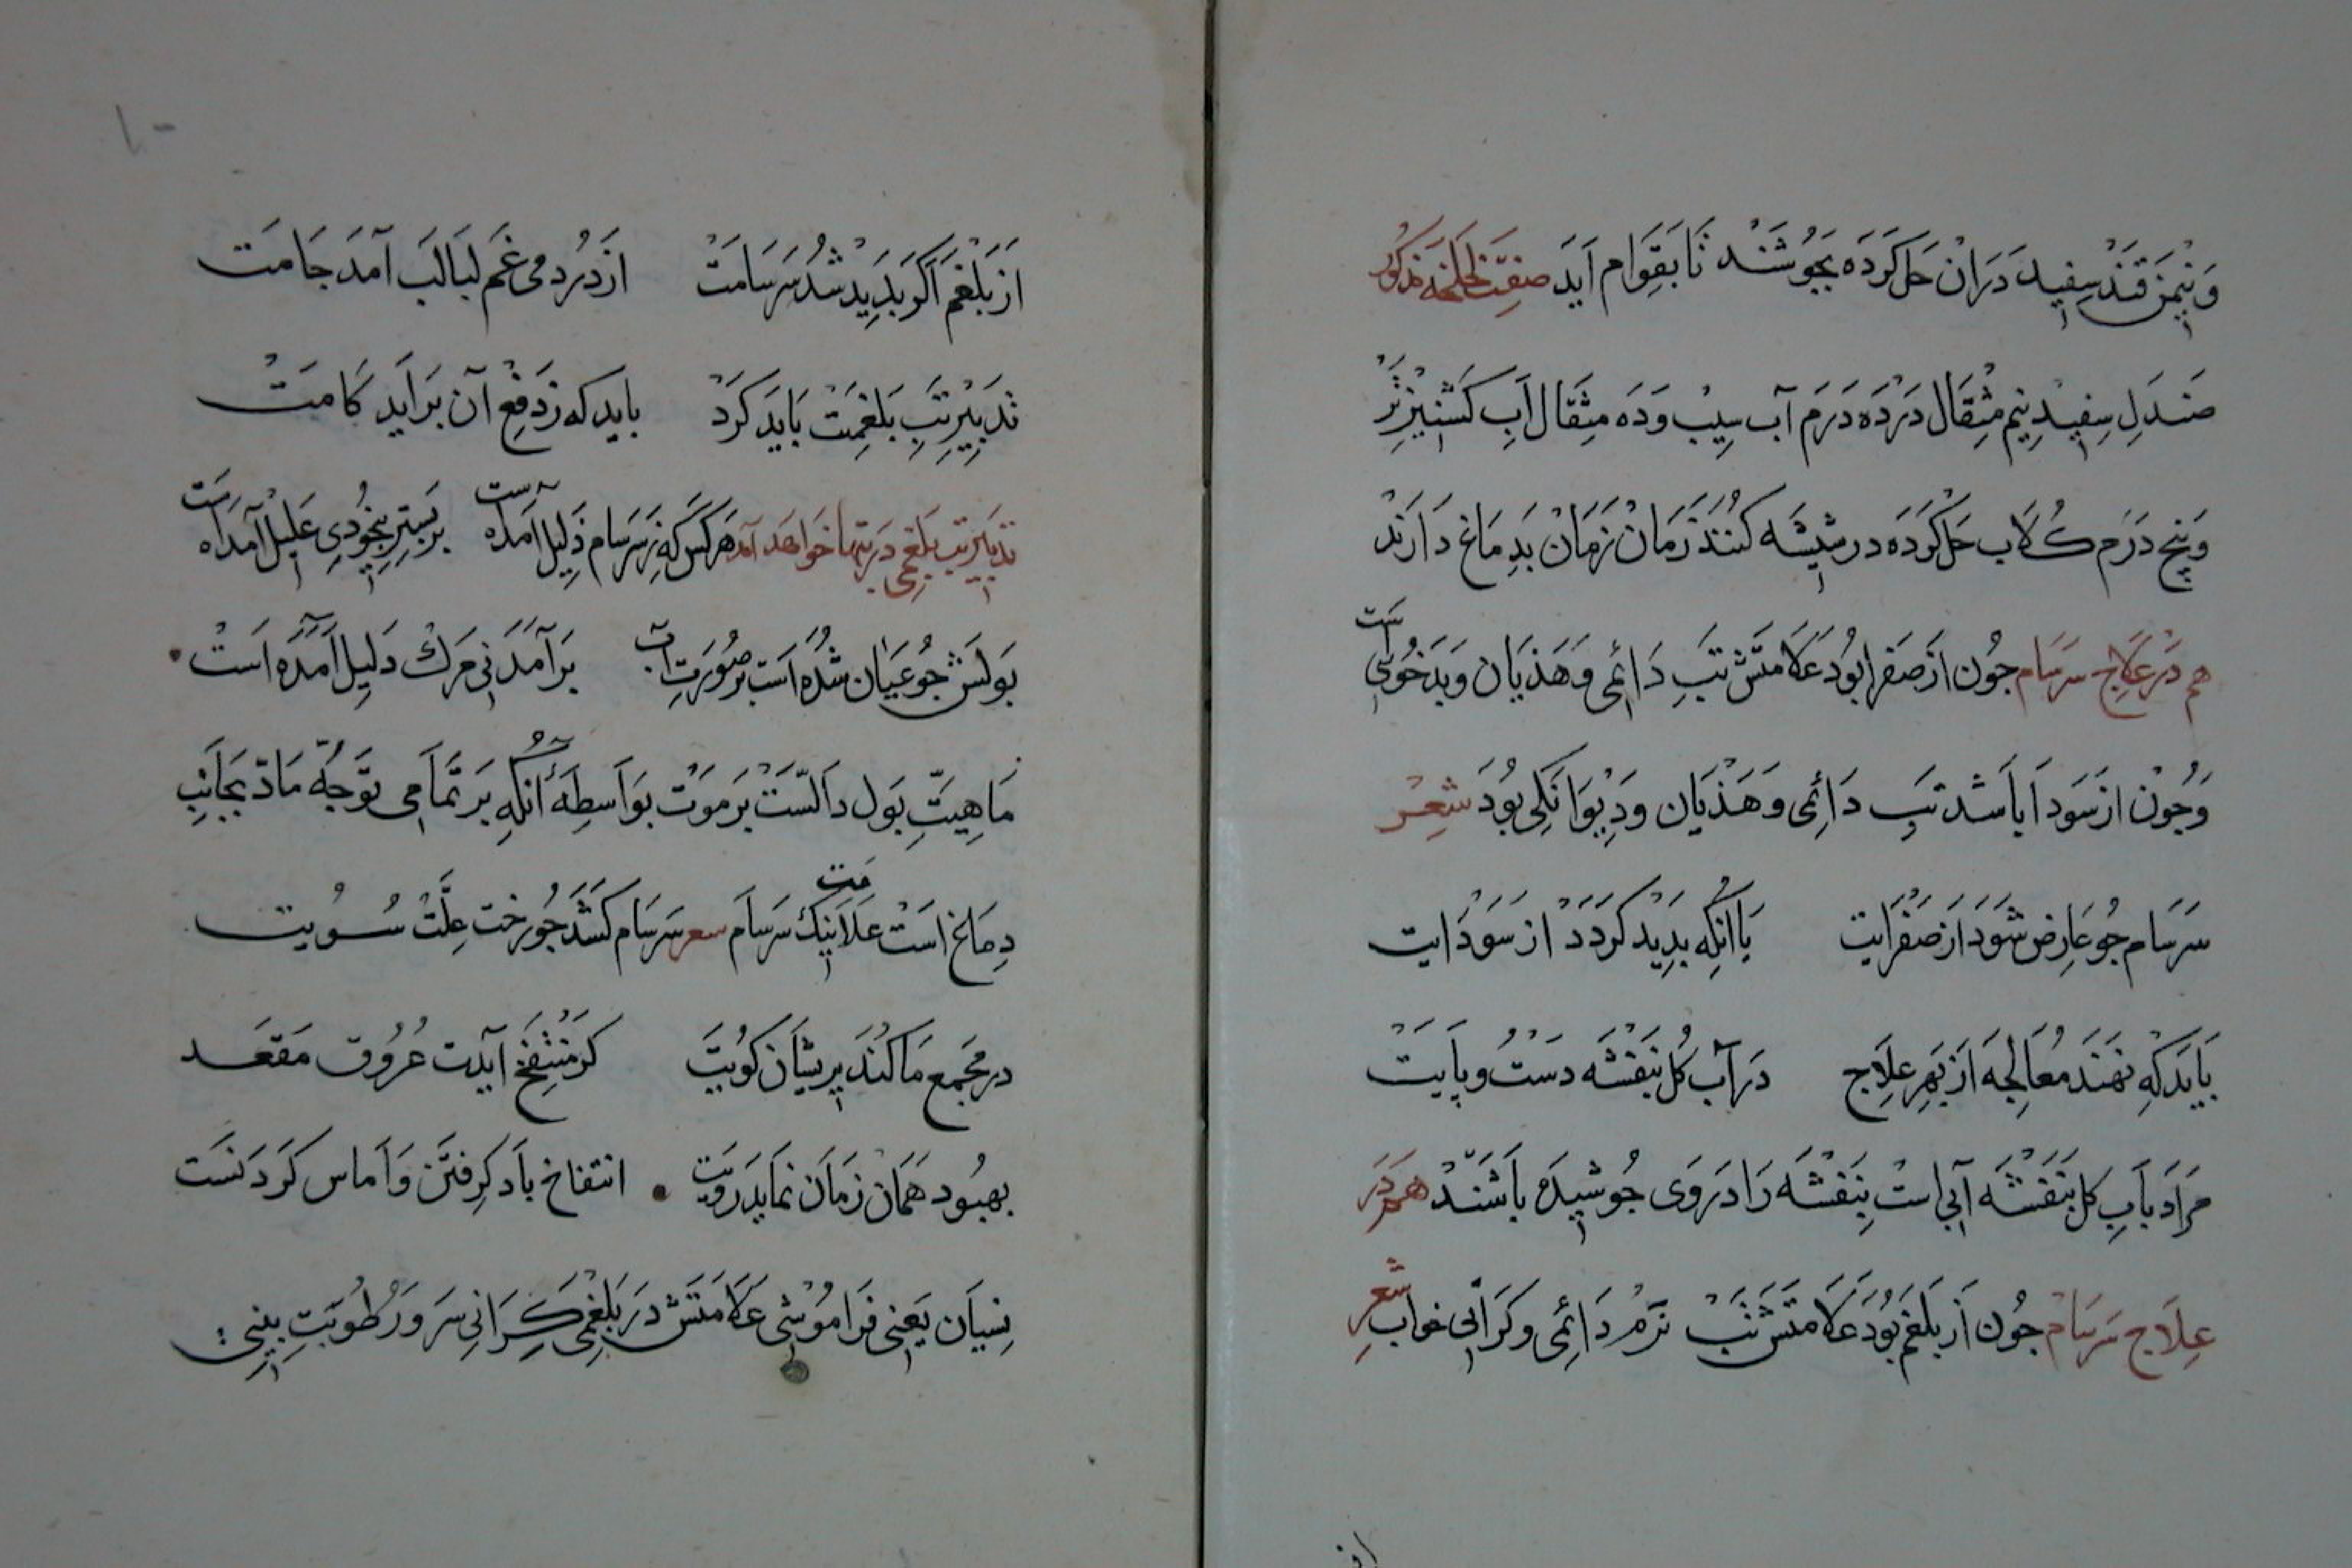 وَنِیْمَنْ قَنْدِ سِفِید دَرَانْ حَل کَرْدَه بِجُوشَنْد تَا بَقِوَام آیَد صِفَتِ لَخْلَخَه مَذکُور
صَنْدَلِ سِفِیْد نِیم مِثْقَال دَرْدَه دَرَم آب سِیْب وَدَه مِثْقَال آبِ کَشْنِیزِ تَرْ
وَپَنج دَرَم کُلَاب حَل کَرْدَه دَر شِیْشَه کُنَنْد زَمَانْ زَمَانْ بَدِمَاغ دَارَنْد
هم دَر عِلَاجِ سَرسَام جُون از صَفرا بُوَد عَلَامَتَش تَبِ دَائِمی وَهَذَیَان وَبَدخُوی اَسَت
وَجُوْن از سَودَا بَاشَد تَبِ دَائِمی وَهَذْیَان ودِیْوَانَکِی بُوَد شِعِر
سَرَسَام جُو عَارِض شَوَد اَز صَفْرَایَت
یَا آنکِه بَدِیْد کَردَد از سَوْدَایَت
بَایَد کِه نَهَنْد مُعَالِجَه اَز بَهرِ عِلَاج
دَر آب کُل بَنَفْشَه دَسْت و پَایَت
مُرَاد بَآبِ کل بَنَفْشَه آبی است بَنَفْشَه رَا دَر وَی جُوشِیدَه بَاشَنْدْ هم دَر
عِلَاج سَرسَام جُون اَز بَلغَم بُوَد عَلَامَتَش تَبْ نَرم دَائِمی وکَرَانی خواب شعر
از بَلْغَم اَکَر بَدِیْد شُد سَرسَامَتْ
از دُردِ می غَم لَبَالَب آمَد جَامَت
تَدبِیْرِ تَبِ بَلغَمِیَتْ بَایَد کَرْد
باید که زدَفعِ آن بَر آیَد کَامَتْ
تَدبیرِ تَبِ بَلغَمِی دَر تبها خواهَد آمد هَرکَس که زسَرسَام ذَلِیل آمده است
بر بَسْتَرِ بیخُودِی عَلِیْل آمده است
بَولَش جُو عَیَان شُده است بَر صُورَتِ آب
بَر آمَدَنِی مَرک دَلِیل آمَدَه اَستْ
مَاهِیَتِ بَول دَالَسْت بَر مَوْت بوَاسِطَهٔ آنکِه بَر تَمَامی تَوَجُه مَادّه بجَانِبِ
دِمَاغ اَسَتْ عَلَامَتِ نیک سَرسَام سعر سَرسَام کَشَد جُو رخت عِلَّت سُویت
در مَجمَع مَا کُنَد پَرِیشَان کُویَت
کر مُنْتَفِخ آیدَت عُرُوق مَقعَد
بهبُود هَمَان زَمَان نمَاید رویَت
انتفاخ بَاد کرفتَن وَآمَاس کَردَنَست
نِسیَان یَعنِی فَرَامُوشِی عَلَامَتَش دَر بَلغَمِی کَرَانِی سَر وَرُطُوبَتِ بینِی